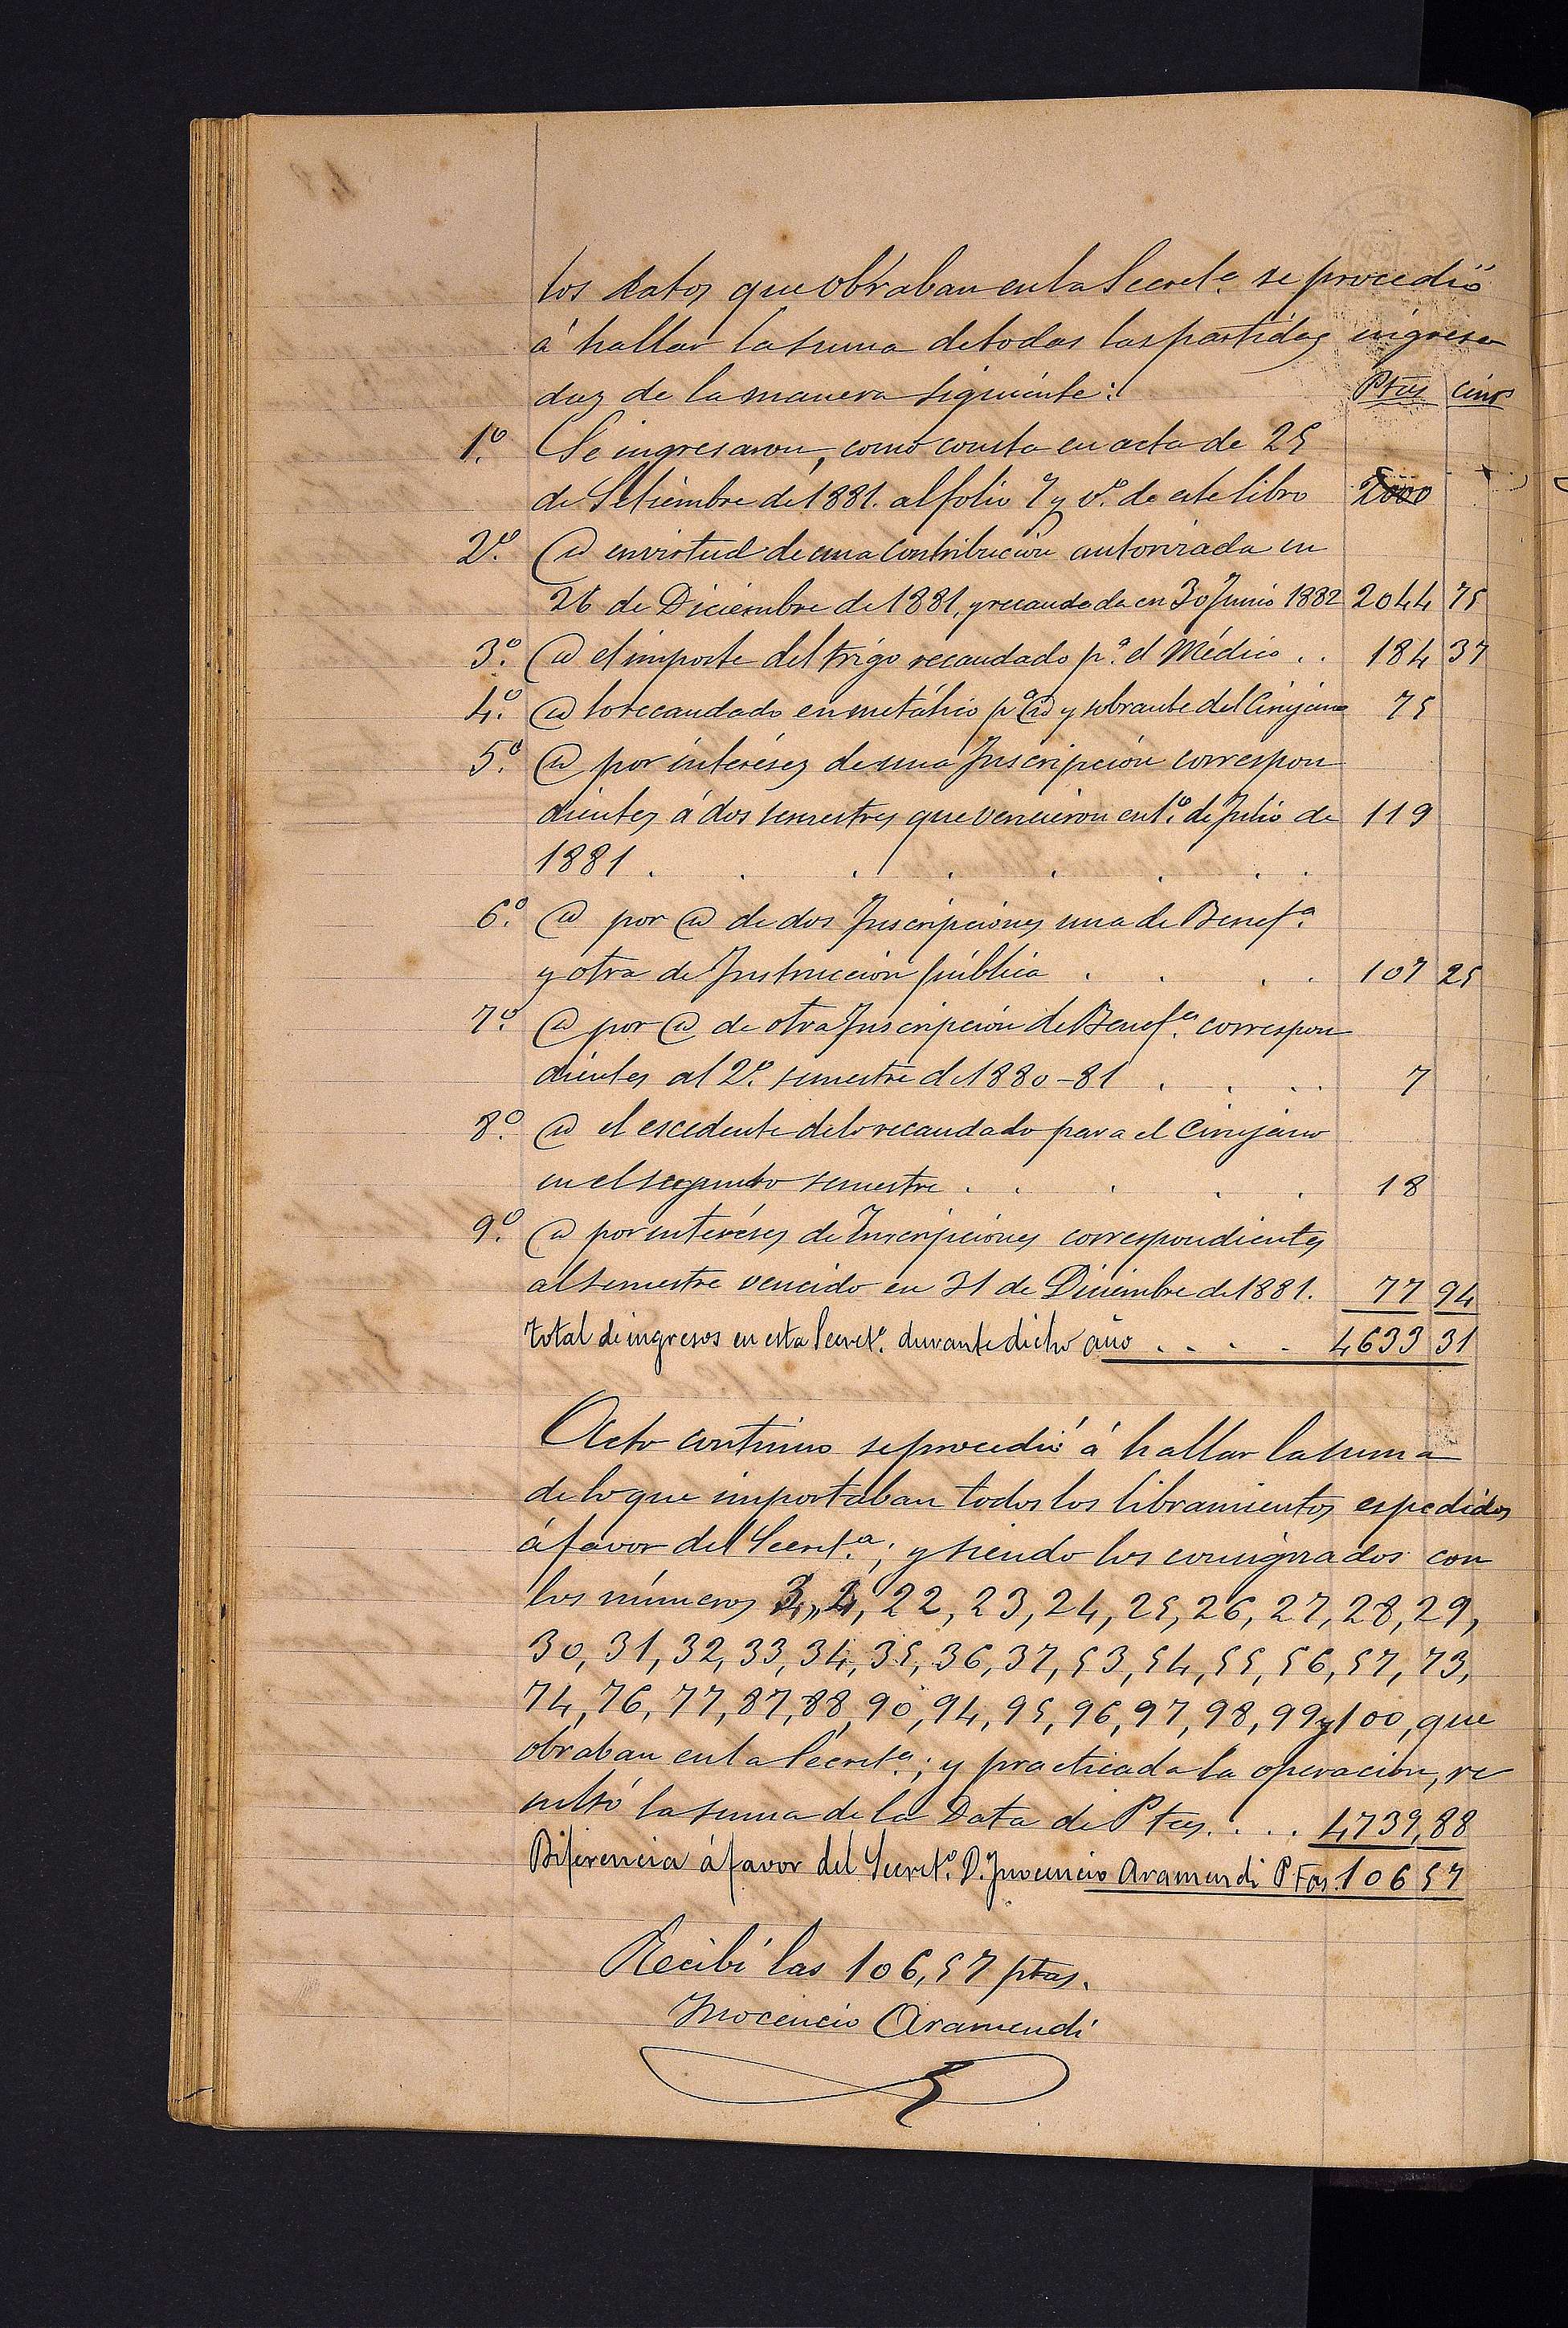 los datos que obraban en la Secret.ª se procedió
á hallar la suma de todas las partidas ingresa
das de la manera siguiente: Ptas cints
1.º Se ingresaron, como consta en acta de 25
de Setiembre de 1881. al folio 7 y v.º de este libro 2000
2.º @ en virtud de una contribución autorizada en
26 de Diciembre de 1881, y recaudada en 30 Junio 1882 2044 75
3.º @ el importe del trigo recaudado p.ª el Médico . . 184 37
4.º @ lo recaudado en metálico p.ª @ y sobrante del Cirujano 75
5.º @ por intereses de una Inscripción correspon
dientes á dos semestres que vencieron en 1.º de Julio de 119
1881 . . . . . . . .
6.º @ por @ de dos Inscripciones una de Benef.ª
y otra de Instrucción pública . . . . 107 25
7.º @ por @ de otra Inscripción de Benef.ª correspon
dientes al 2.º semestre de 1880-81 . . . . 7
8.º @ el escedente de lo recaudado para el Cirujano
en el segundo semestre . . . . . 18
9.º @ por intereses de Inscripciones correspondientes
al semestre vencido en 31 de Diciembre de 1881. 77 94
Total de ingresos en esta Secret.ª durante dicho año . . . . 4633 31
Acto continuo se procedió á hallar la suma
de lo que importaban todos los libramientos espedidos
á favor del Secret.ª; y siendo los consignados con
los números 22, 23, 24, 25, 26, 27, 28, 29,
30, 31, 32, 33, 34, 35, 36, 37, 53, 54, 55, 56, 57, 73,
74, 76, 77, 87, 88, 90, 94, 95, 96, 97, 98, 99 y 100, que
obraban en la Secret.ª; y practicada la operación, re
sultó la suma de la Data de Ptas. . . . 4739,88
Diferencia á favor del Secret.º D. Inocencio Aramendi Ptas. 106 57
Recibí las 106,57 ptas.
Inocencio Aramendi